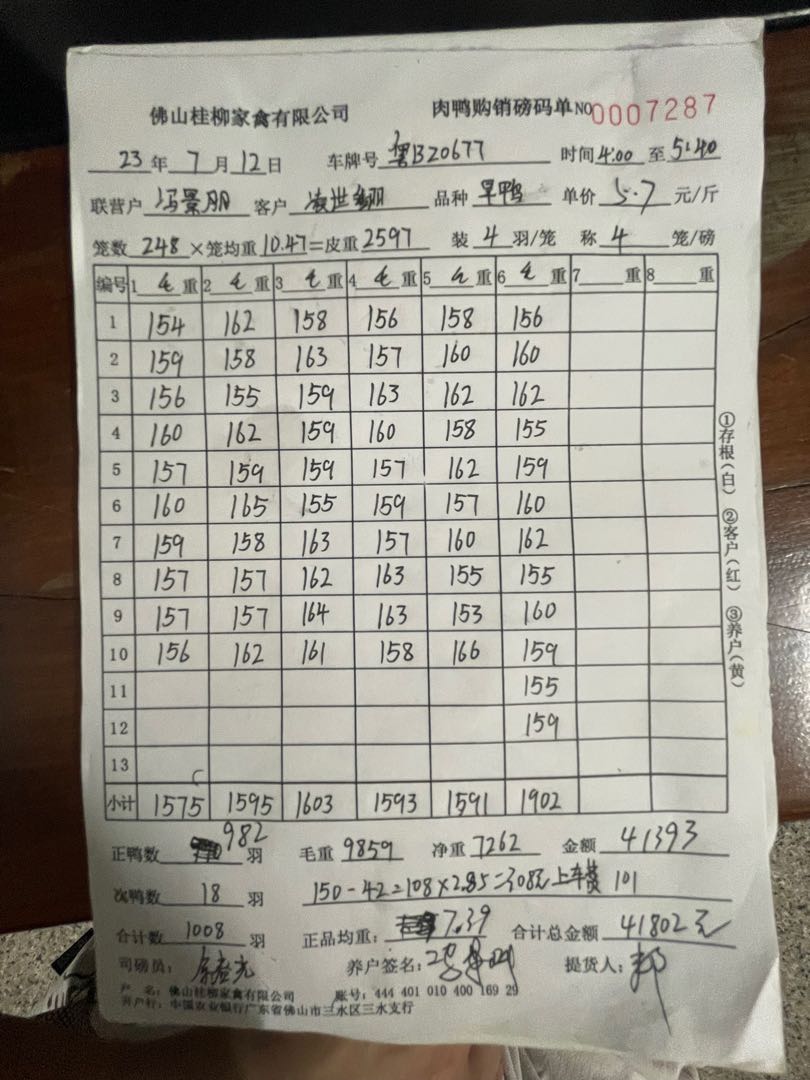 佛山桂柳家禽有限公司 肉鸭购销磅码单 NO 0007287
23 年 7 月 12 日 车牌号 粤B20677 时间 4:00 至 5:40
联营户 冯景朋 客户 凌世翻 品种 旱鸭 单价 5.7 元/斤
笼数 248 × 笼均重 10.47 = 皮重 2597 装 4 羽/笼 称 4 笼/磅
编号 1 毛 重 2 毛 重 3 毛 重 4 毛 重 5 毛 重 6 毛 重 7 重 8 重
1 154 162 158 156 158 156
2 159 158 163 157 160 160
3 156 155 159 163 162 162
4 160 162 159 160 158 155
5 157 159 159 157 162 159
6 160 165 155 159 157 160
7 159 158 163 157 160 162
8 157 157 162 163 155 155
9 157 157 164 163 153 160
10 156 162 161 158 166 159
11 155
12 159
13
小计 1575 1595 1603 1593 1591 1902
①存根(白) ②客户(红) ③养户(黄)
正鸭数 982 羽 毛重 9859 净重 7262 金额 41393
次鸭数 18 羽 150-42=108×2.85=308元 上车费 101
合计数 1008 羽 正品均重: 7.39 合计总金额 41802元
司磅员: 养户签名: 提货人:
户 名: 佛山桂柳家禽有限公司 账号: 444 401 010 400 169 29
开户行: 中国农业银行广东省佛山市三水区三水支行